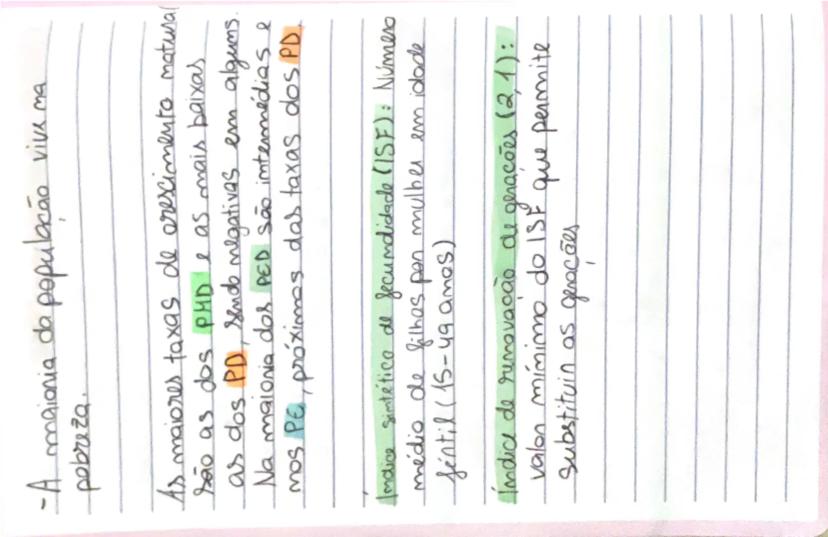 - A maioria da população vive na
pobreza.
As maiores taxas de crescimento natural
são as dos PMD e as mais baixas
as dos PD, sendo negativas em alguns.
Na maioria dos PED são intermédias e
nos PE, próximas das taxas dos PD.
Índice sintético de fecundidade (ISF): Número
médio de filhos por mulher em idade
fértil (15-49 anos)
Índice de renovação de gerações (2,1):
valor mínimo do ISF que permite
substituir as gerações